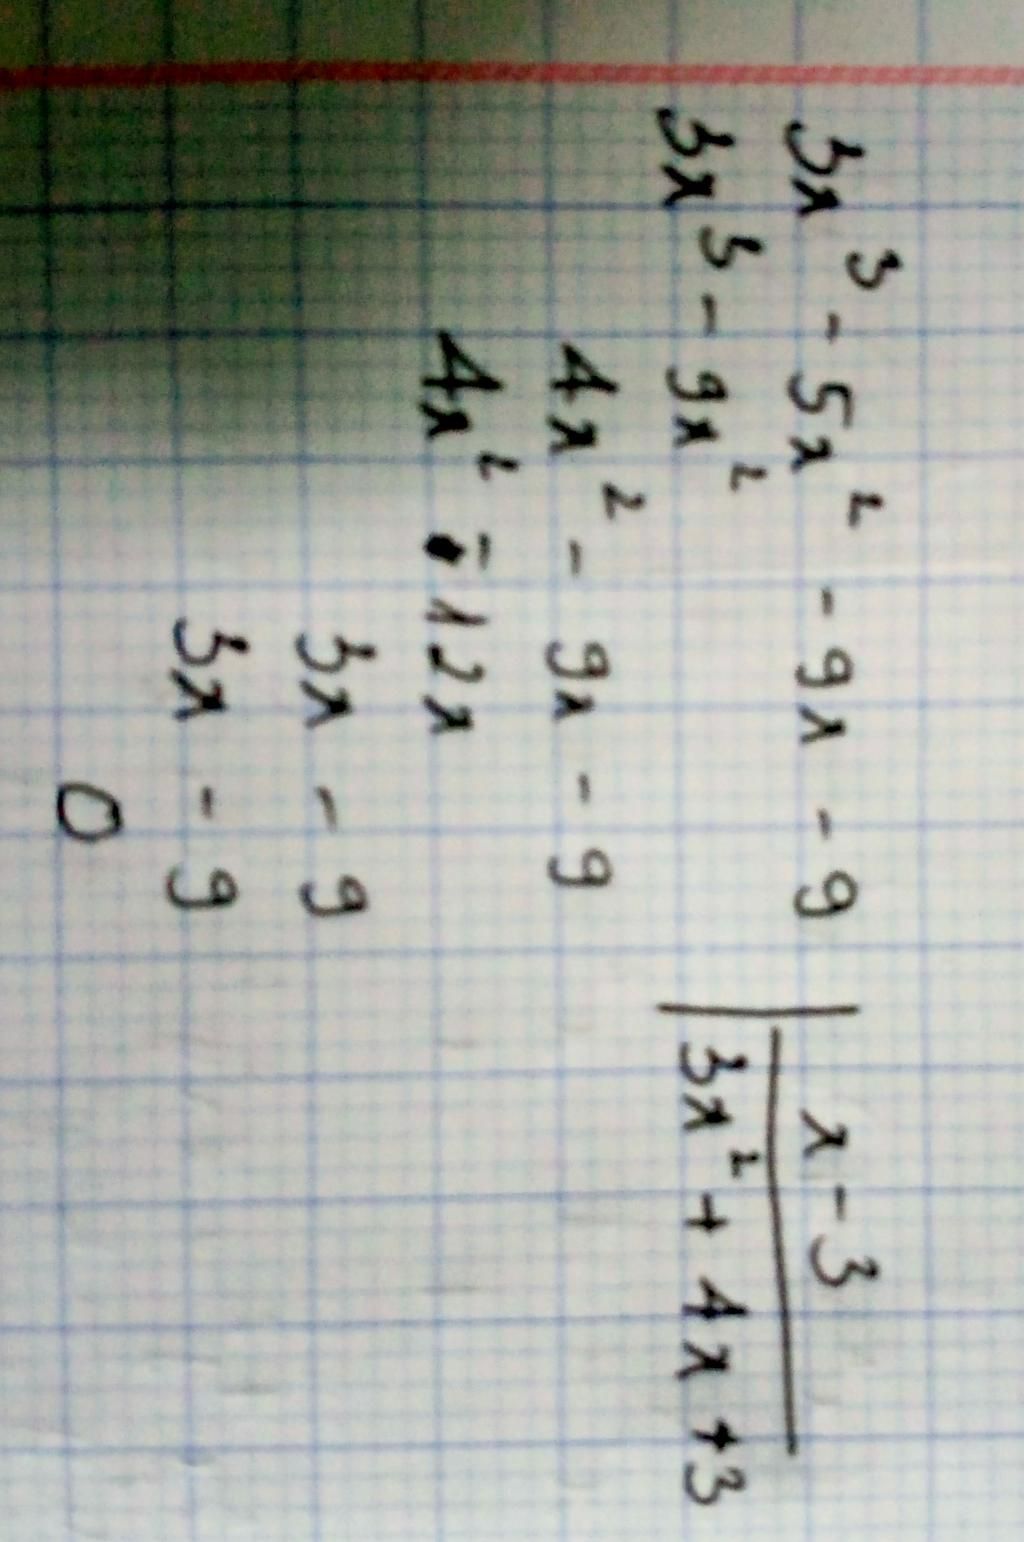 3x³ - 5x² - 9x - 9 | x - 3
3x³ - 9x² | 3x² + 4x + 3
4x² - 9x - 9
4x² - 12x
3x - 9
3x - 9
0